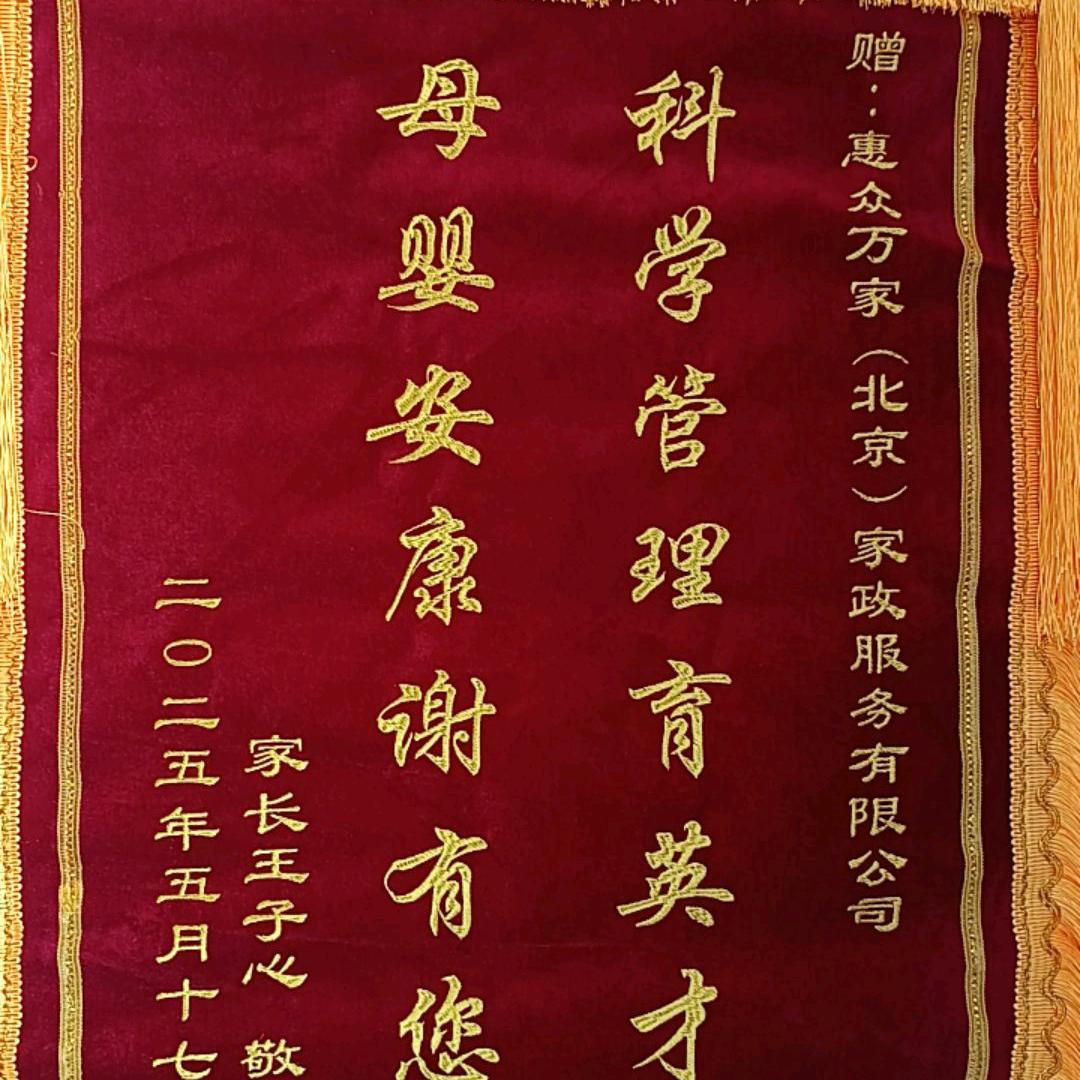 赠：惠众万家（北京）家政服务有限公司
科学管理育英才
母婴安康谢有您
家长王子心 敬
二〇二五年五月十七